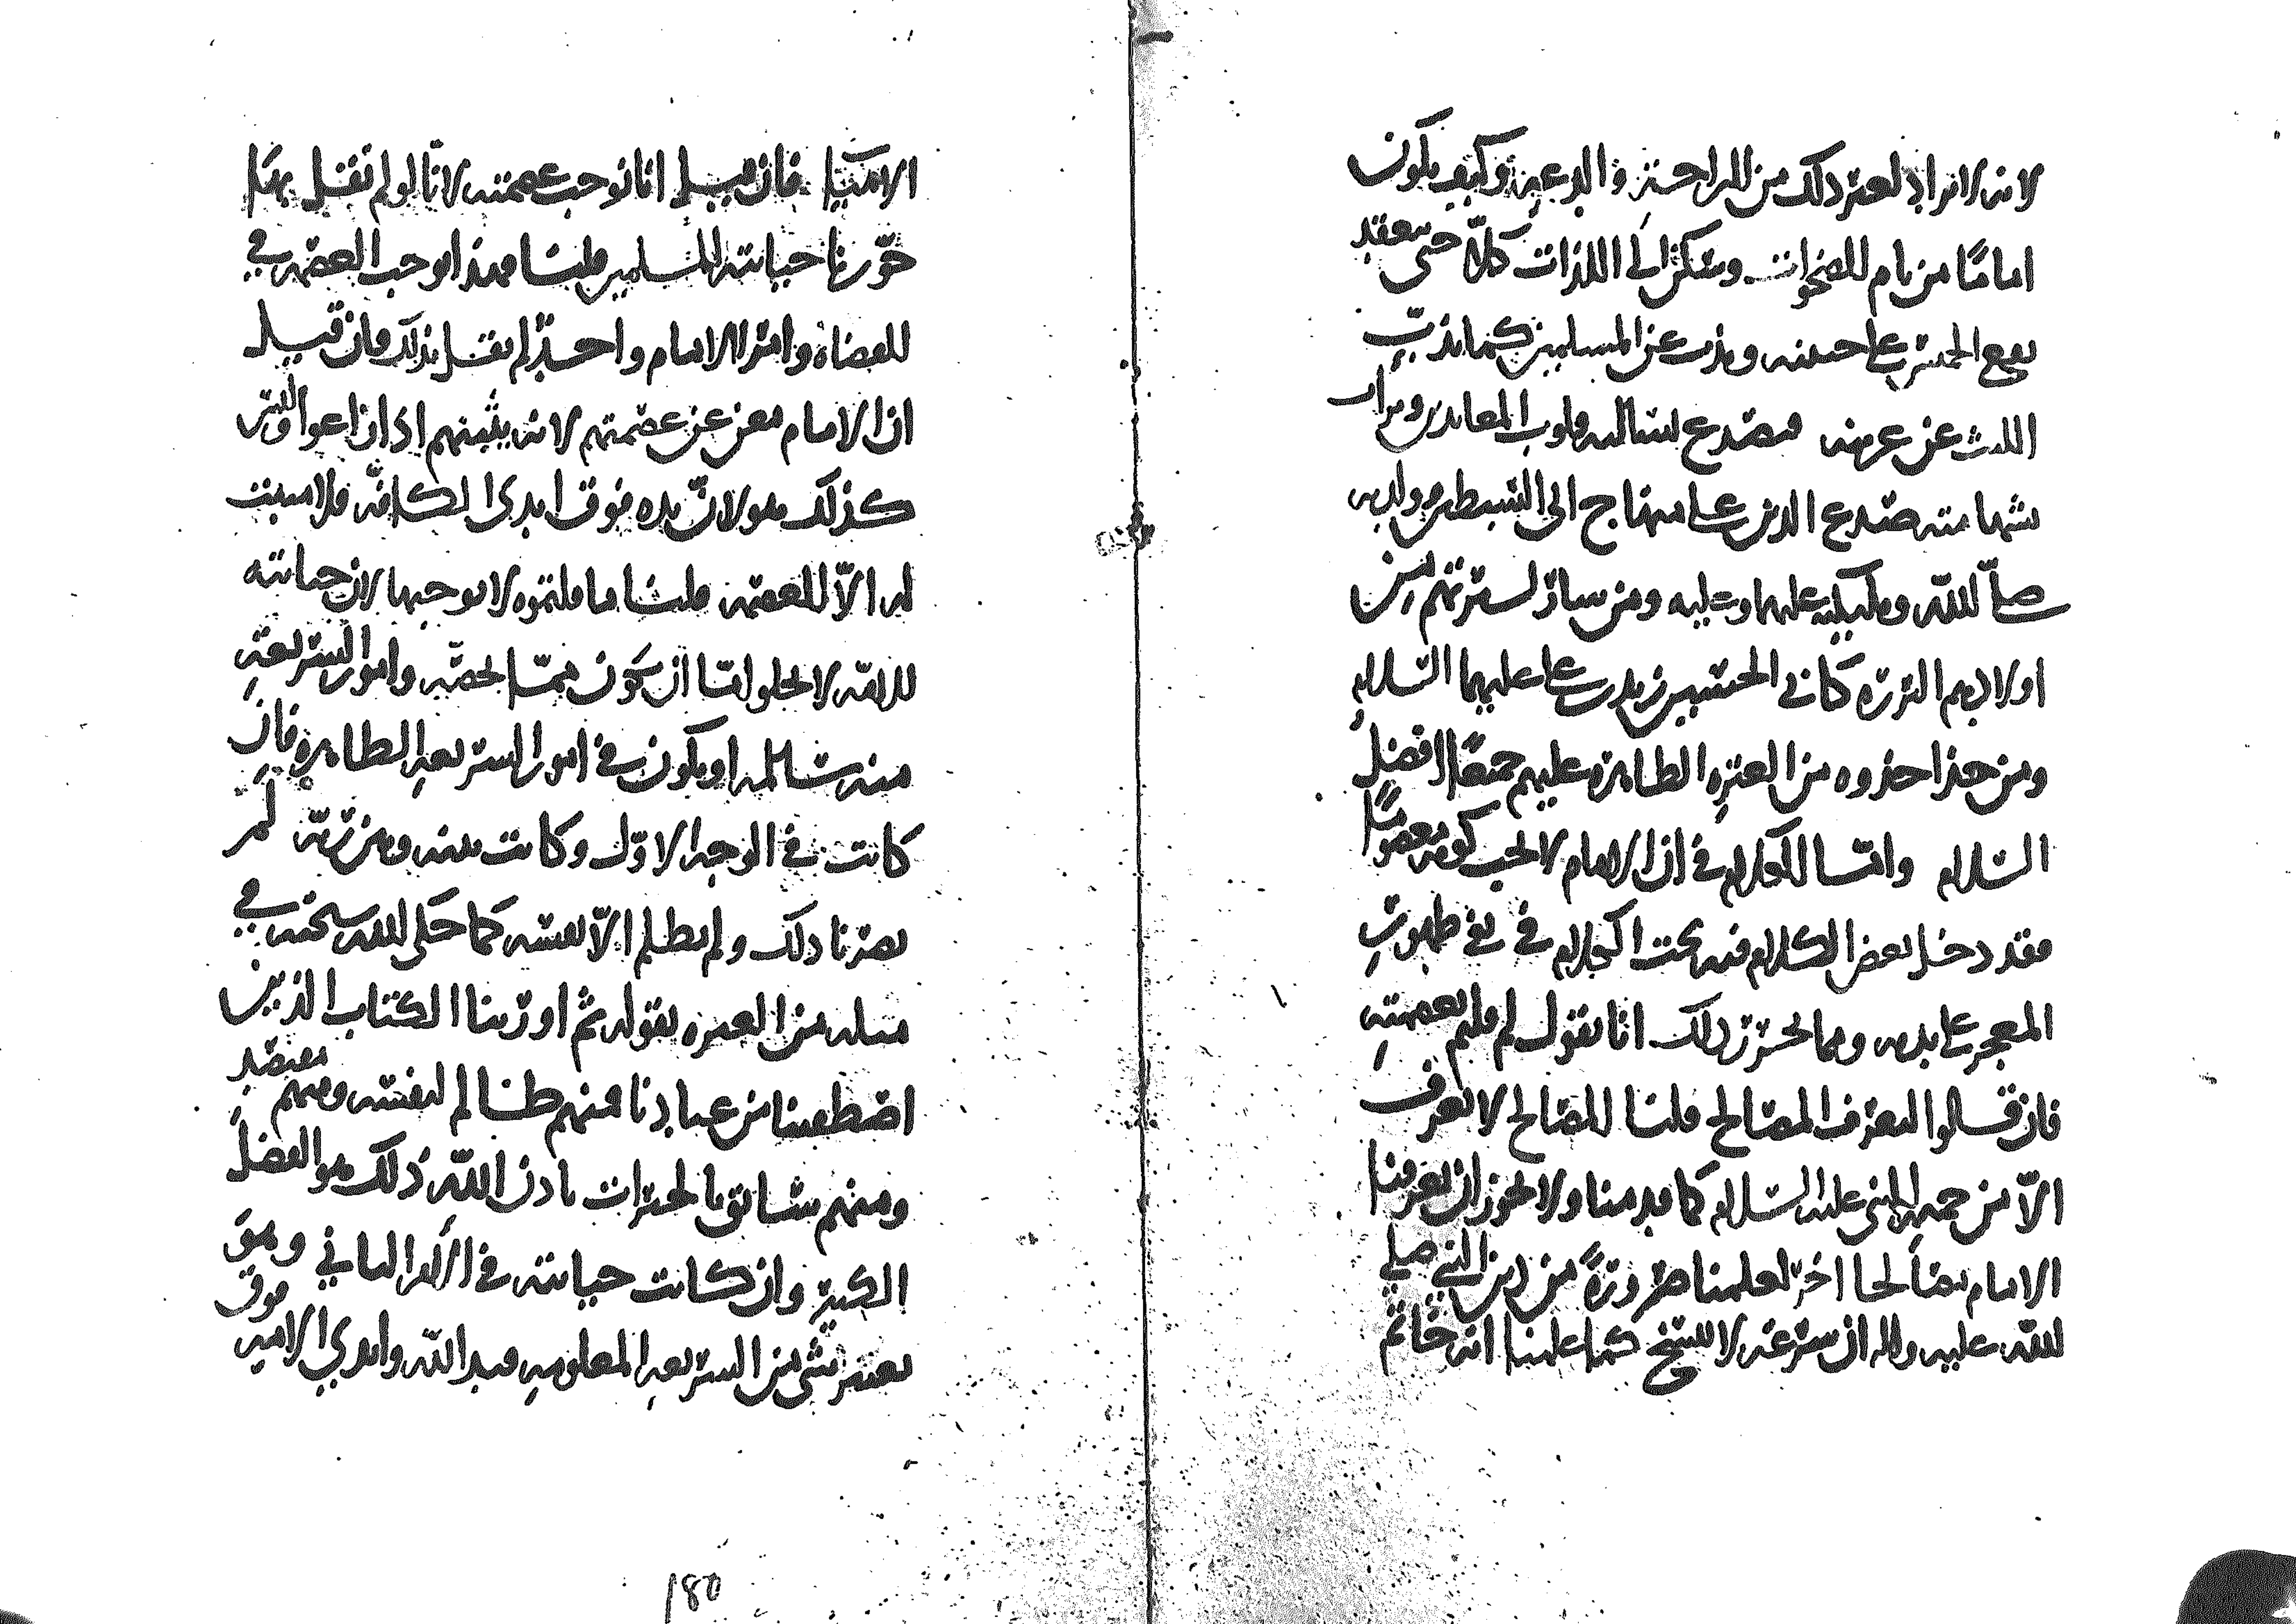 لانه لا يراد لغير ذلك من الراحة والدعة وكيف يكون
امامًا من نام الضحوات وسكن الى اللذات كلا حتى يعقد
يقع الحسر على احسنه ويذب عن المسلمين كما يذب
الليث عن عرينه فتصدع لسالته قلوب المعاندين ومراب
شهامته صدع الدين على منهاج ابي السبطين وولديه
صلى الله وملائكته عليهما وعليه ومن سار لسيرتهم من
اولادهم البررة كابي الحسين زيد بن علي عليهما السلام
ومن حذا حذوه من العترة الطاهرة عليهم جميعًا افضل
السلام واما الكلام في ان الامام لا يجب كونه معصومًا
فقد دخل بعض الكلام فيه تحت الكلام في نفي ظهور
المعجز على يديه ومما يحرر ذلك انا نقول لم قلتم بعصمته
فان قالوا ليعرف المصالح قلنا المصالح لا تعرف
الا من جهة النبي عليه السلام كما قدمنا ولا يجوز ان يعرفنا
الامام مصالحا اخر لعلمنا ضرورةً من دين النبي صلى
الله عليه واله ان شرعه لا ينسخ كما علمنا انه خاتم
الانبيا فان قيل انا نوجب عصمته لانا لو لم نقل بهذا
جوزنا خيانته المسلمين قلنا فهذا يوجب العصمة في
القضاة وامرا الامام واحد لم يقل بذلك فان قيل
ان الامام مغن عن عصمتهم لانه يثبتهم اذا زاغوا
كذلك هو لان يده فوق ايدي الكافة فلا مثبت
له الا العصمة قلنا ما قلتموه لا يوجبها لان خيانته
للامة لا يخلو اما ان تكون فيما يخصه وامور الشريعة
منه سالمة او يكون في امور الشريعة الطاهرة فان
كانت في الوجه الاول وكانت بينه وبين ربه لم
يضرنا ذلك ولم يظلم الا نفسه كما حكى الله سبحنه في
مثله من العترة بقوله ثم اورثنا الكتاب الذين
اصطفينا من عبادنا فمنهم ظالم لنفسه ومنهم مقتصد
ومنهم سابق بالخيرات باذن الله ذلك هو الفضل
الكبير وان كانت خيانته في الامر الثاني وهو
بغير شي من الشريعة المعلومة فيد الله وايدي الامة فوق
180